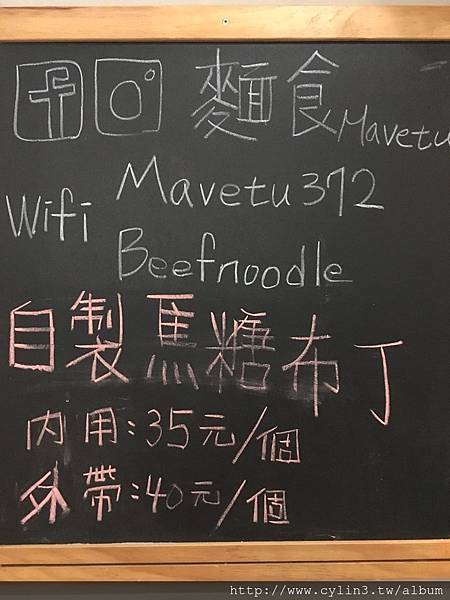 麵食 Mavetu
Wifi Mavetu372
Beefnoodle
自製焦糖布丁
内用:35元/個
外帶:40元/個
http://www.cylin3.tw/album